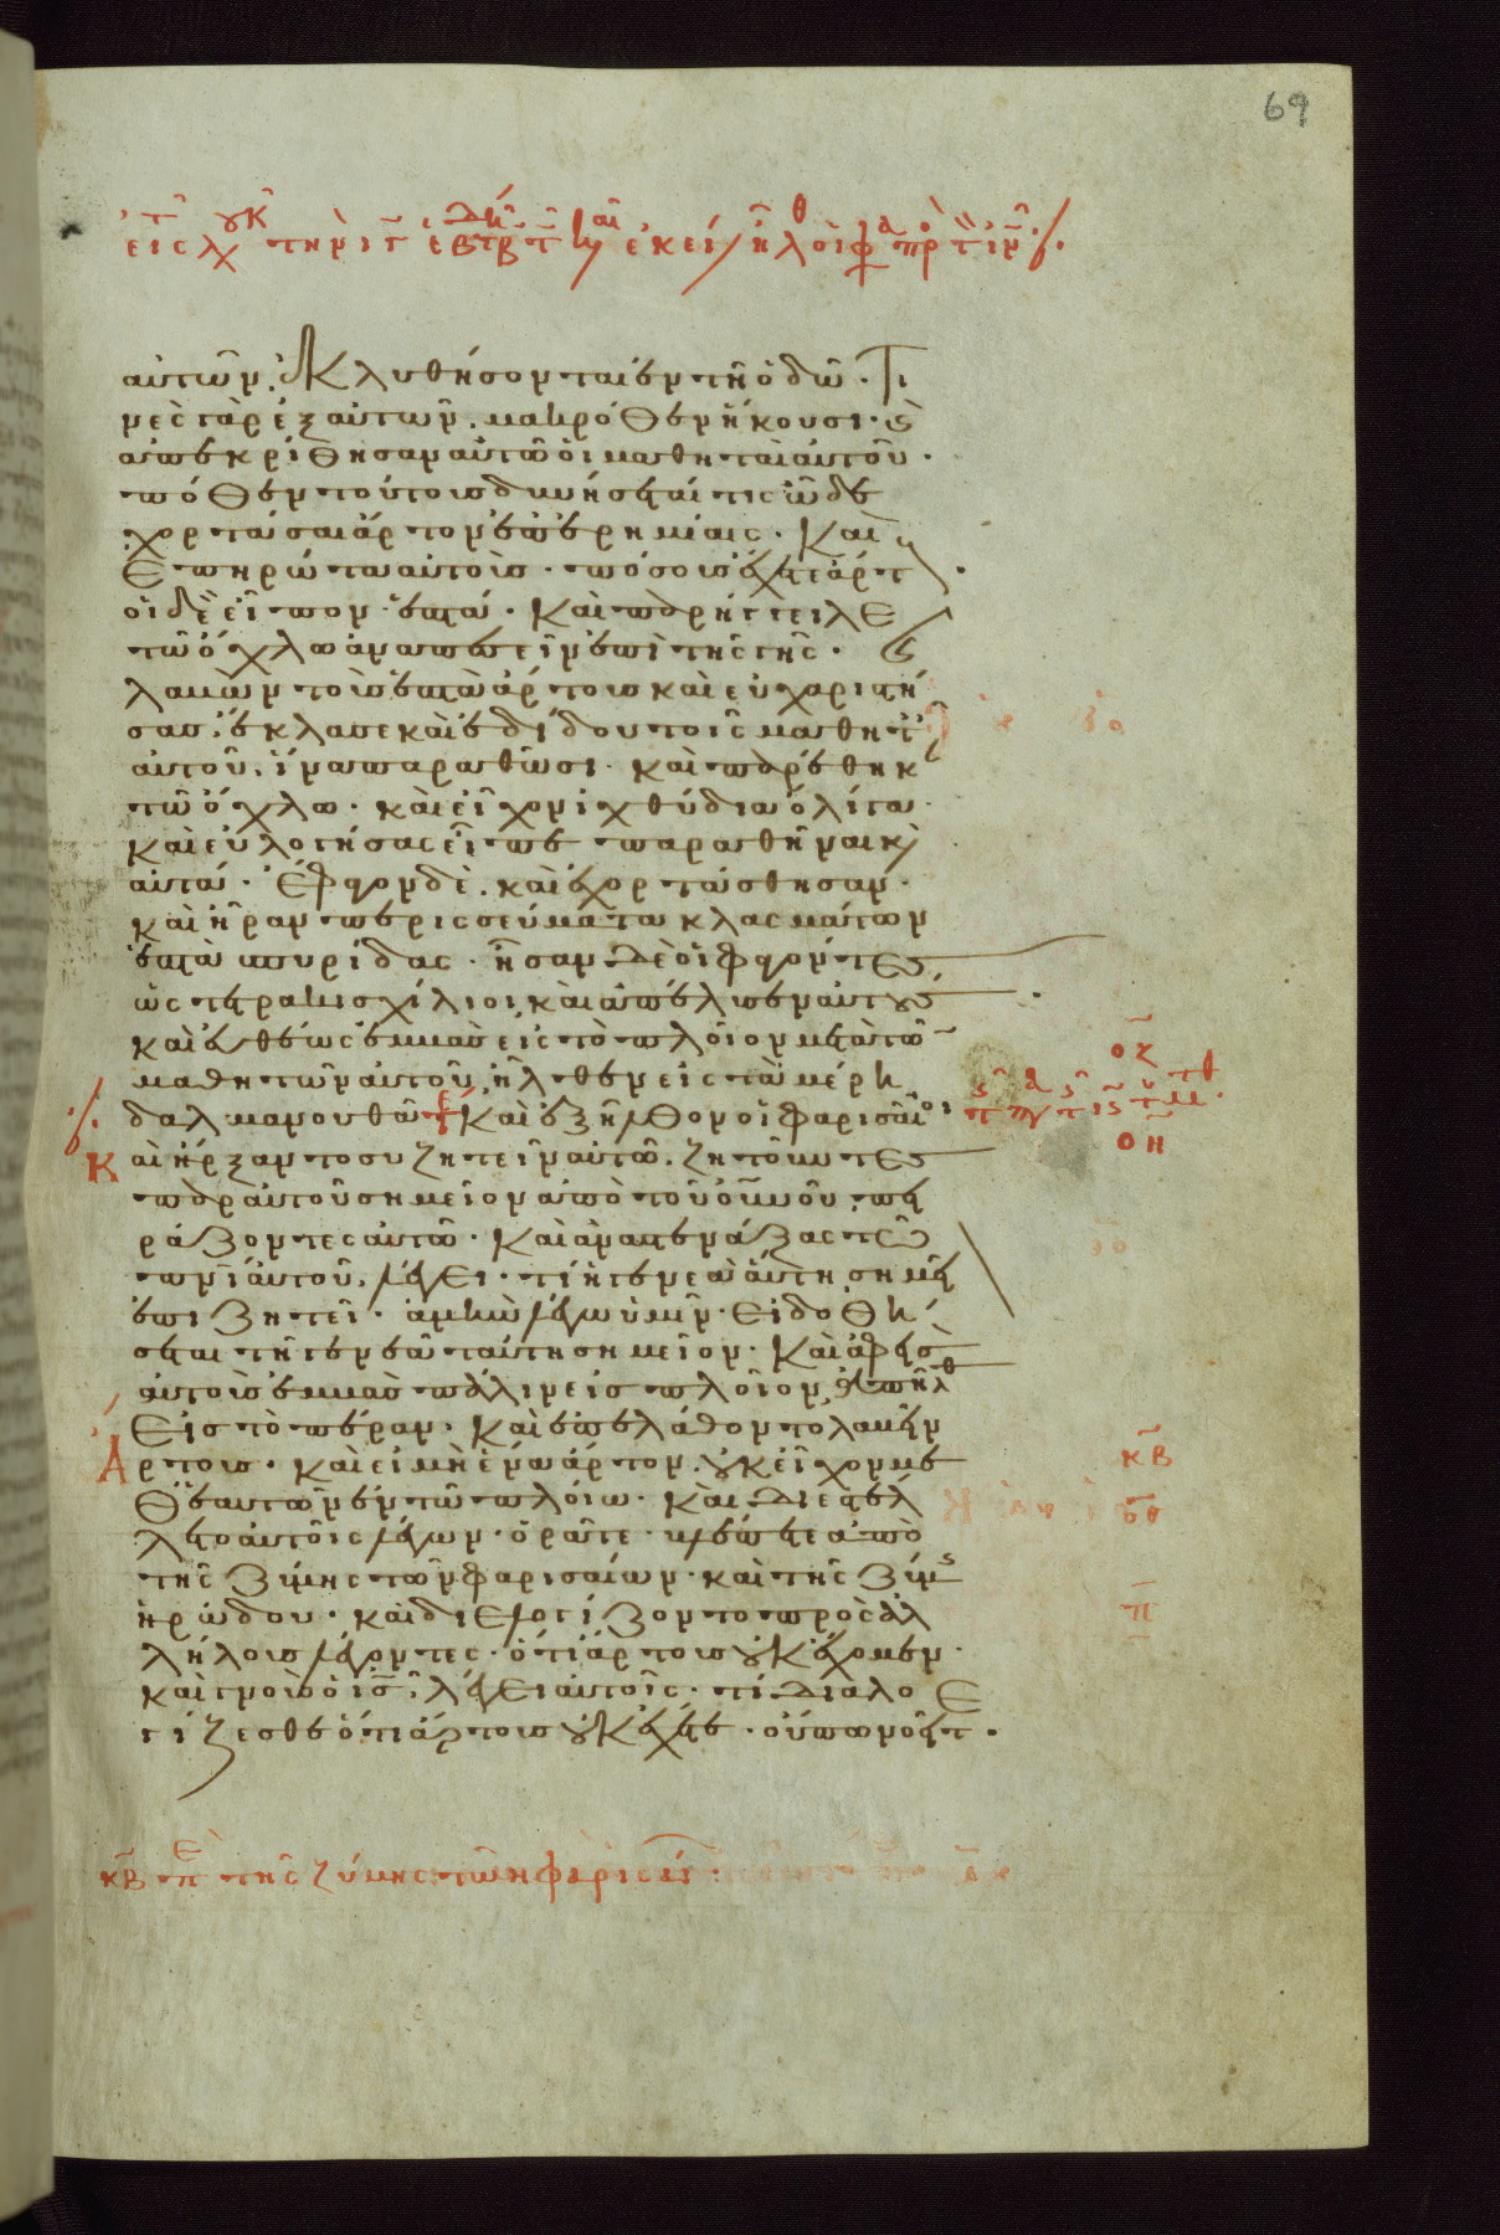 69
αὐτῶν. ἐκλυθήσονται ἐν τῆ ὁδῶ. Τι
νὲς γὰρ ἐξ αὐτῶν. μακρόθεν ἥκουσι. καὶ
ἀπεκρίθησαν αὐτῶ οἱ μαθηταὶ αὐτοῦ.
πόθεν τούτους δυνήσεταί τις ὧδε
χορτάσαι ἄρτον ἐπ ἐρημίαις. Καὶ
Επηρώτα αὐτοὺς. πόσους ἔχετε ἄρτ
οἱ δὲ εἶπον ἑπτά. Καὶ παρήγγειλε
τῶ ὄχλω ἀναπεσεῖν ἐπὶ τῆς γῆς. καὶ
λαβὼν τοὺς ἑπτὰ ἄρτους καὶ εὐχαριστή
σας. ἔκλασε καὶ ἐδίδου τοῖς μαθητ
αὐτοῦ. ἵνα παραθῶσι. καὶ παρέθηκ
τῶ ὄχλω. καὶ εἶχον ἰχθύδια ὀλίγα.
καὶ εὐλογήσας εἶπε παραθῆναι κ
αὐτά. Ἔφαγον δὲ. καὶ ἐχορτάσθησαν.
καὶ ἦραν περισσεύματα κλασμάτων
ἑπτὰ σπυρίδας. ἦσαν δὲ οἱ φαγόντες
ὡς τετρακισχίλιοι, καὶ ἀπέλυσεν αὐτους.
καὶ εὐθέως ἐμβὰς εἰς τὸ πλοῖον μετὰ τῶ
μαθητῶν αὐτοῦ, ἦλθεν εἰς τὰ μέρη
δαλμανουθά Καὶ ἐξῆλθον οἱ φαρισαῖοι
οζ
οη
Καὶ ἤρξαντο συζητεῖν αὐτῶ. ζητοῦντες
παρ αὐτοῦ σημεῖον ἀπὸ τοῦ οὐνοῦ, πει
ράζοντες αὐτῶ. Καὶ ἀναστενάξας τῶ
πνι αὐτοῦ, λέγει. τί ἡ γενεὰ αὕτη σημεῖ
ἐπιζητεῖ. ἀμὴν λέγω ὑμῖν. Εἰ δοθή
σεται τῆ γενεᾶ ταύτη σημεῖον. Καὶ ἀφεὶς
αὐτοὺς ἐμβὰς πάλιν εἰς πλοῖον, ἀπῆλθ
Εἰς τὸ πέραν. Καὶ ἐπελάθοντο λαβεῖν
Ἄρτους. καὶ εἰ μὴ ἕνα ἄρτον. οὐκ εἶχον με
κβ
θ ἑαυτῶν ἐν τῶ πλοίω. καὶ διεστέλ
οθ
λετο αὐτοῖς λέγων. ὁρᾶτε. βλέπετε ἀπὸ
τῆς ζύμης τῶν φαρισαίων. καὶ τῆς ζύμ
ἡρώδου. καὶ διελογίζοντο πρὸς ἀλ
π
λήλους λέγοντες. ὅτι ἄρτους οὐκ ἔχομεν.
καὶ γνοὺς ὁ ις, λέγει αὐτοῖς. τί διαλο
γίζεσθε ὅτι ἄρτους οὐκ ἔχετε. οὔπω νοεῖτ.
κβ πε τῆς ζύμης τῶν φαρισαί.